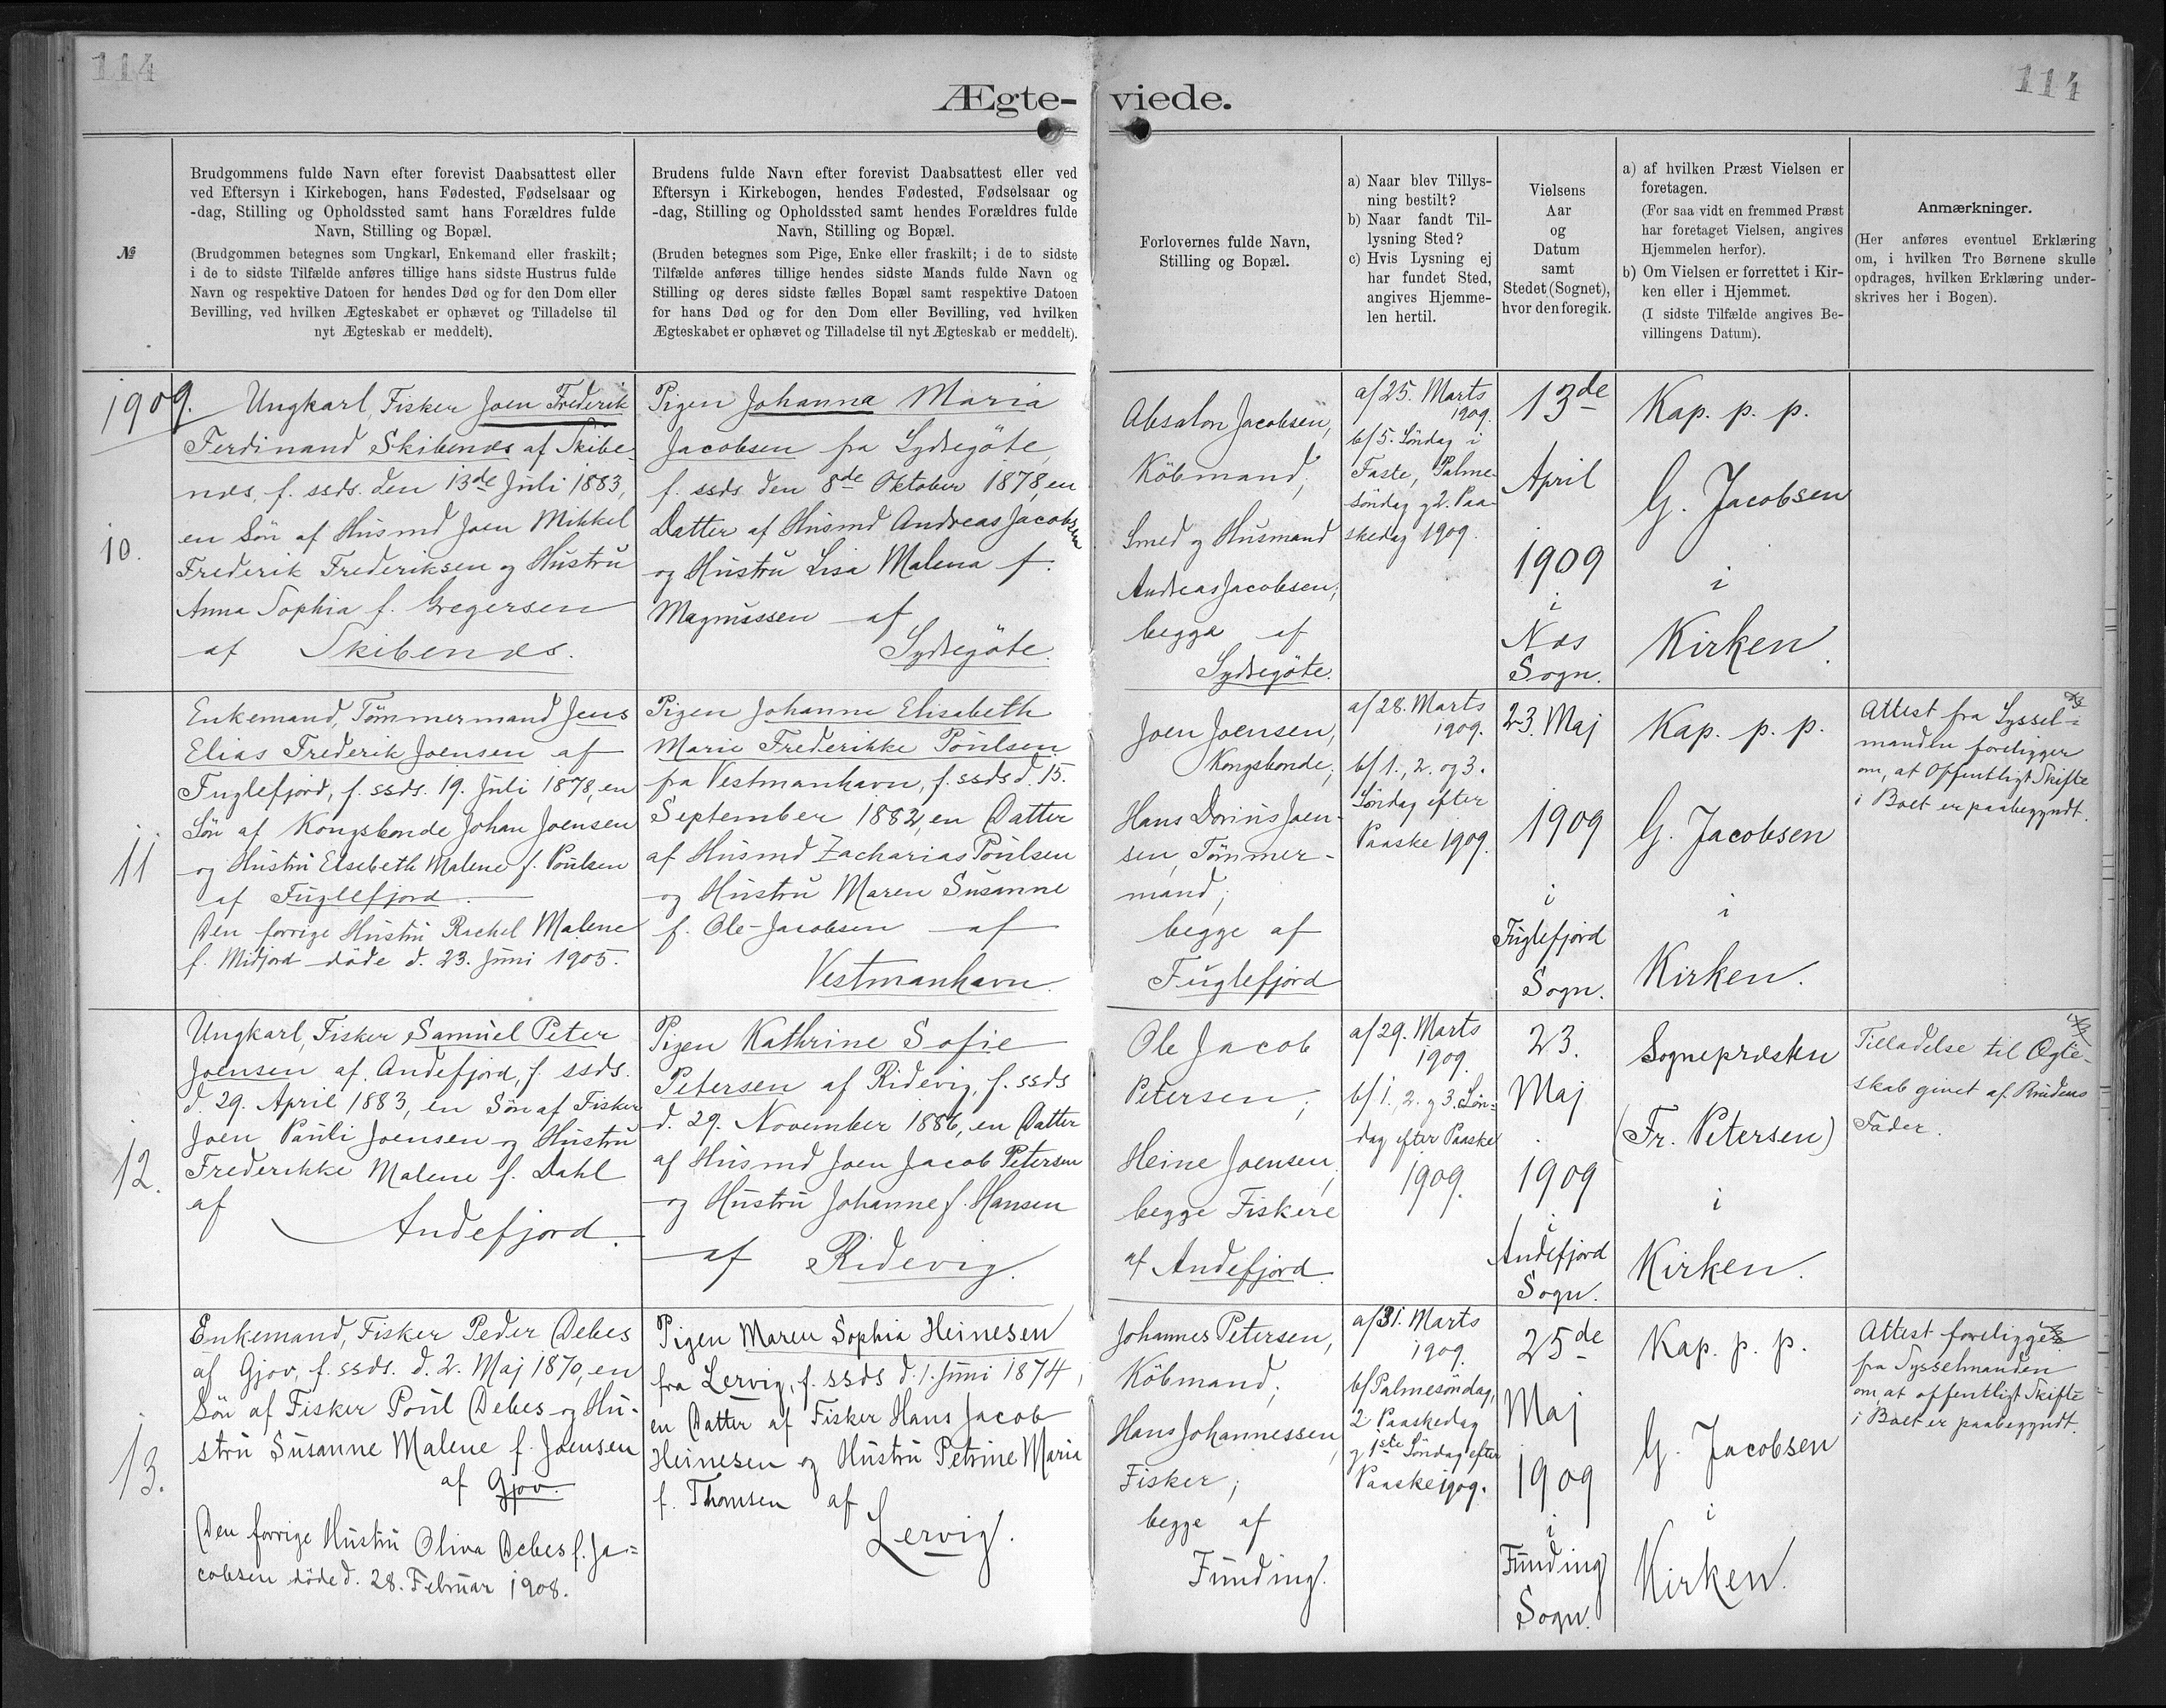 114
114
Ægte-
viede.
№
Brudgommens fulde Navn efter forevist Daabsattest eller
ved Eftersyn i Kirkebogen, hans Fødested, Fødselsaar og
-dag, Stilling og Opholdssted samt hans Forældres fulde
Navn, Stilling og Bopæl.
(Brudgommen betegnes som Ungkarl, Enkemand eller fraskilt;
i de to sidste Tilfælde anføres tillige hans sidste Hustrus fulde
Navn og respektive Datoen for hendes Død og for den Dom eller
Bevilling, ved hvilken Ægteskabet er ophævet og Tilladelse til
nyt Ægteskab er meddelt).
Brudens fulde Navn efter forevist Daabsattest eller ved
Eftersyn i Kirkebogen, hendes Fødested, Fødselsaar og
-dag, Stilling og Opholdssted samt hendes Forældres fulde
Navn, Stilling og Bopæl.
(Bruden betegnes som Pige, Enke eller fraskilt; i de to sidste
Tilfælde anføres tillige hendes sidste Mands fulde Navn og
Stilling og deres sidste fælles Bopæl samt respektive Datoen
for hans Død og for den Dom eller Bevilling, ved hvilken
Ægteskabet er ophævet og Tilladelse til nyt Ægteskab er meddelt).
Forlovernes fulde Navn,
Stilling og Bopæl.
a) Naar blev Tillys-
ning bestilt?
b) Naar fandt Til-
lysning Sted?
c) Hvis Lysning ej
har fundet Sted,
angives Hjemme-
len hertil.
Vielsens
Aar
og
Datum
samt
Stedet (Sognet),
hvor den foregik.
a) af hvilken Præst Vielsen er
foretagen.
(For saa vidt en fremmed Præst
har foretaget Vielsen, angives
Hjemmelen herfor).
b) Om Vielsen er forrettet i Kir-
ken eller i Hjemmet.
(I sidste Tilfælde angives Be-
villingens Datum).
Anmærkninger.
(Her anføres eventuel Erklæring
om, i hvilken Tro Børnene skulle
opdrages, hvilken Erklæring under-
skrives her i Bogen).
1909.
10.
Ungkarl, Fisker Joen Frederik
Ferdinand Skibenæs af Skibe-
næs, f. ssds. den 13de Juli 1883,
en Søn af Husmd Joen Mikkel
Frederik Frederiksen og Hustru
Anna Sophia f. Gregersen
af Skibenæs.
Pigen Johanna Maria
Jacobsen fra Sydregöte,
f. ssds den 8de Oktober 1878, en
Datter af Husmd Andreas Jacobsen
og Hustru Lisa Malena f.
Magnussen af
Sydregöte.
Absalon Jacobsen,
Köbmand;
Smed og Husmand
Andreas Jacobsen;
begge af
Sydregöte.
a/ 25. Marts
1909.
b/ 5. Söndag i
Faste, Palme-
söndag og 2. Paa-
skedag 1909.
13de
April
1909
i
Næs
Sogn.
Kap. p. p.
G. Jacobsen
i
Kirken.
11
Enkemand, Tömmermand Jens
Elias Frederik Joensen af
Fuglefjord, f. ssds. 19. Juli 1878, en
Søn af Kongsbonde Johan Joensen
og Hustru Elsebeth Malene f. Poulsen
af Fuglefjord.
Den forrige Hustru Rachel Malene
f. Midjord döde d. 23. Juni 1905.
Pigen Johanne Elisabeth
Marie Frederikke Poulsen
fra Vestmanhavn, f. ssds d. 15.
September 1882, en Datter
af Husmd Zacharias Poulsen
og Hustru Maren Susanne
f. Ole-Jacobsen af
Vestmanhavn.
Joen Joensen,
Kongsbonde;
Hans Dorius Joen-
sen, Tömmer-
mand;
begge af
Fuglefjord
a/ 28. Marts
1909.
b/ 1., 2. og 3.
Söndag efter
Paaske 1909.
23. Maj
1909
i
Fuglefjord
Sogn.
Kap. p. p.
G. Jacobsen
i
Kirken.
Attest fra Syssel-
manden foreligger
om, at Offentligt Skifte
i Boet er paabegyndt.
12.
Ungkarl, Fisker Samuel Peter
Joensen af Andefjord, f. ssds.
d. 29. April 1883, en Søn af Fisker
Joen Pauli Joensen og Hustru
Frederikke Malene f. Dahl
af
Andefjord.
Pigen Kathrine Sofie
Petersen af Ridevig, f. ssds
d. 29. November 1886, en Datter
af Husmd Joen Jacob Petersen
og Hustru Johanne f. Hansen
af Ridevig.
Ole Jacob
Petersen;
Heine Joensen,
begge Fiskere
af Andefjord.
a/ 29. Marts
1909.
b/ 1., 2. og 3. Sön-
dag efter Paaske
1909.
23.
Maj
1909
i
Andefjord
Sogn.
Sognepræsten
(Fr. Petersen)
i
Kirken.
Tilladelse til Ægte-
skab givet af Brudens
Fader.
13.
Enkemand, Fisker Peder Debes
af Gjov, f. ssds. d. 2. Maj 1870, en
Søn af Fisker Poul Debes og Hu-
stru Susanne Malene f. Joensen
af Gjov.
Den forrige Hustru Oliva Debes f. Ja-
cobsen döde d. 28. Februar 1908.
Pigen Maren Sophia Heinesen
fra Lervig, f. ssds d. 1. Juni 1874,
en Datter af Fisker Hans Jacob
Heinesen og Hustru Petrine Maria
f. Thomsen af
Lervig.
Johannes Petersen,
Köbmand;
Hans Johannessen,
Fisker;
begge af
Funding.
a/ 31. Marts
1909.
b/ Palmesöndag,
2 Paaskedag
og 1ste Söndag efter
Paaske 1909.
25de
Maj
1909
i
Funding
Sogn.
Kap. p. p.
G. Jacobsen
i
Kirken.
Attest foreligger
fra Sysselmanden
om, at offentligt Skifte
i Boet er paabegyndt.